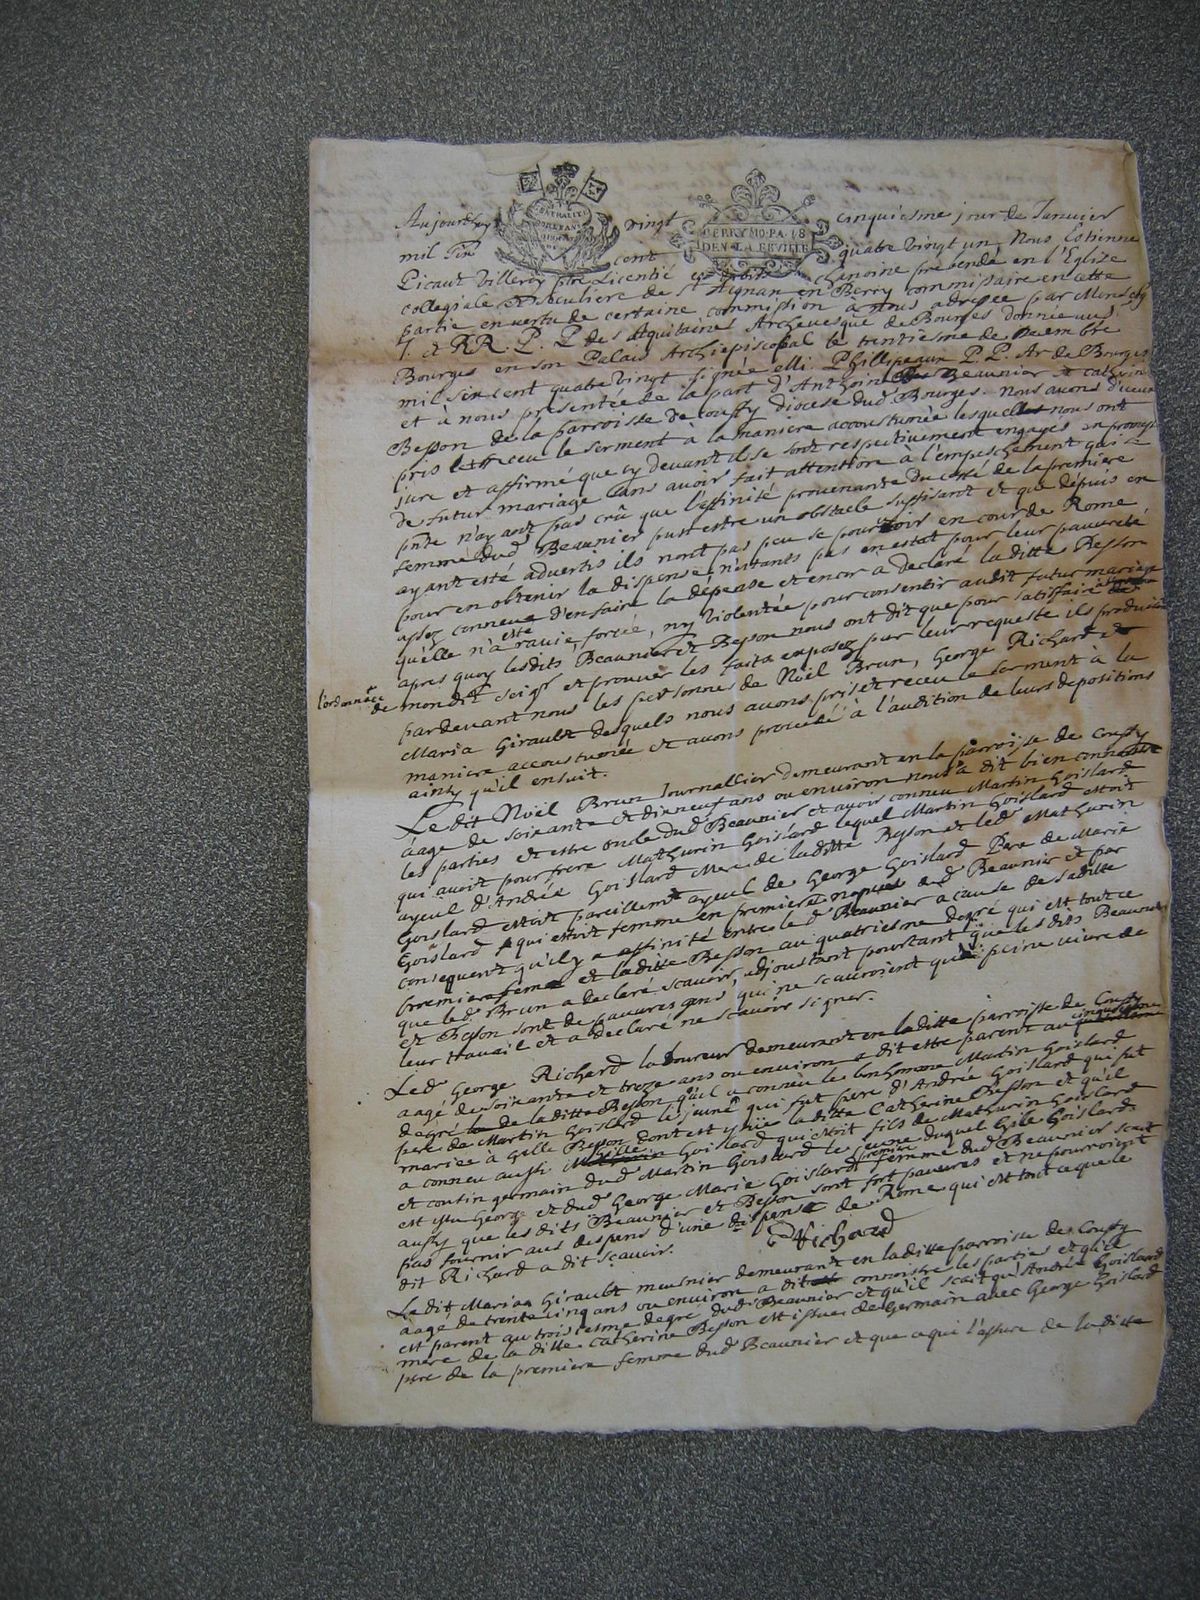 Aujourdhuy vingt cinquiesme jour de Januier
mil six cent quatre vingt un Nous Estienne
Picaut Villeroy pbre Licentié es droits chanoine prebendé en l'Eglise
collegiale et seculiere de St Aignan en Berry commissaire en cette
partie en vertu de certaine commission à nous adressée par Monseigr
J. et RR. P. P. des Aquitaines Archeuesque de Bourges donnée aud
Bourges en son Palais Archiepiscopal le trentiesme de decembre
mil six cent quatre vingt signée Phillipeaux P. P. Ar de Bourges
et à nous presentée de la part d'Anthoine Beaunier et catherine
Besson de la parroisse de couffy diocese dud Bourges. Nous auons d'iceux
pris et receu le serment à la maniere accoustumée lesquels nous ont
juré et affirmé que cy deuant ils se sont respectiuement engagés
de futur mariage sans auoir fait attention à l'empeschement qui se
pnte n'ayant pas crû que l'affinité prouenante du costé de la premiere
femme dud Beaunier pust estre un obstacle suffisant et que depuis en
ayant esté aduertis ils n'ont pas peu se pouruoir en cour de Rome
pour en obtenir la dispense n'estants pas en estat pour leur pauureté
assez connue d'en faire la dépense et encor a declaré laditte Besson
qu'elle n'a esté rauie, forcée, ny violentée pour consentir audit futur mariage
apres quoy lesdits Beaunier et Besson nous ont dit que pour satisfaire à
l'ordonnance de mondit Seigr et prouuer les faits exposez par leur requeste ils produisent
pardeuant nous les personnes de Noël Brun, George Richard et
Maria Girault desquels nous auons pris et receu le serment à la
maniere accoustumée et auons procedé à l'audition de leurs depositions
ainsy qu'il ensuit.
Le dit Noël Brun Journallier demeurant en la parroisse de Couffy
aagé de soixante et dix neuf ans ou enuiron nous a dit bien connoistre
les parties et estre oncle dud Beaunier et auoir conneu Martin Goislard
qui auoit pour frere Mathurin Goislard lequel Martin Goislard estoit
ayeul d'Andrée Goislard Mere de laditte Besson et led Mathurin
Goislard estoit pareillemt ayeul de George Goislard Pere de Marie
Goislard qui estoit femme en premieres nopces dud Beaunier et par
consequent qu'il y a affinité entre led Beaunier a cause de saditte
premiere femme et laditte Besson au quatriesme degré qui est tout ce
que led Brun a declaré scauoir, adjoustant pourtant que lesdits Beaunier
et Besson sont de pauures gens qui ne scauroient qu'à peine uiure de
leur trauail et a declaré ne scauoir signer.
Led George Richard laboureur demeurant en laditte parroisse de Couffy
aagé de soixante et treze ans ou enuiron a dit estre parent au cinquiesme
degré de la ditte Besson qu'il a conneu le bonhomme Martin Goislard
pere de Martin Goislard le jeune qui fut pere d'Andrée Goislard qui fut
mariée à Gille Besson dont est yssüe la ditte Catherine Besson et qu'il
a conneu aussi Gille Goislard qui estoit fils de Mathurin Goislard
et cousin germain dud Martin Goislard le jeune duquel Gille Goislard
est issu George et dud George Marie Goislard premiere femme dud Beaunier scait
aussy que lesdits Beaunier et Besson sont fort pauures et ne pourroient
pas fournir aux despens d'une dispense de Rome qui est tout ce que le
dit Richard a dit scauoir. Richard
Le dit Marian Girault meusnier demeurant en laditte parroisse de Couffy
aagé de trente cinq ans ou enuiron a dit connoistre les parties et qu'il
est parent au troisiesme degré dud Beaunier et qu'il scait qu'Andrée Goislard
mere de la ditte Catherine Besson est issue de Germain auec George Goislard
pere de la premiere femme dud Beaunier et que ce qui l'assure de la ditte